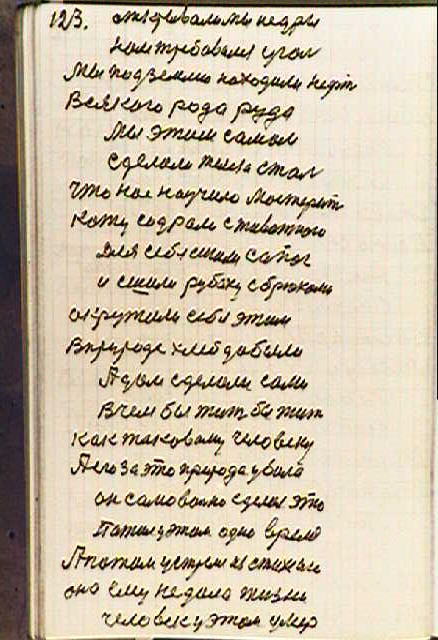 123. открывали мы недры
нам требовался угол
Мы подземлю находили нефть
Всякого рода руда
Мы этим самым
сделали сталь
что нас научило мостерить
кожу содрали с животного
Для себя сшили сапог
и сшили рубаху с брюками
окружили себя этим
В природе хлеб добыли
А дом сделали сами
В чем бы жить бы жить
как таковому человеку
А его за это природа убила
он самовольно сделал это
Потом у этом одно время
А потом устроил из стихии
она ему не дала жизни
человек у этом умер